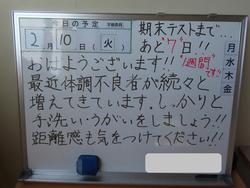 今日の予定
2月10日(火)
期末テストまで...
あと7日!!
1週間です!!
月
火
水
木
金
おはようございます!!
最近体調不良者が続々と
増えてきています。しっかりと
手洗い、うがいをしましょう!!
距離感も気をつけてください!!